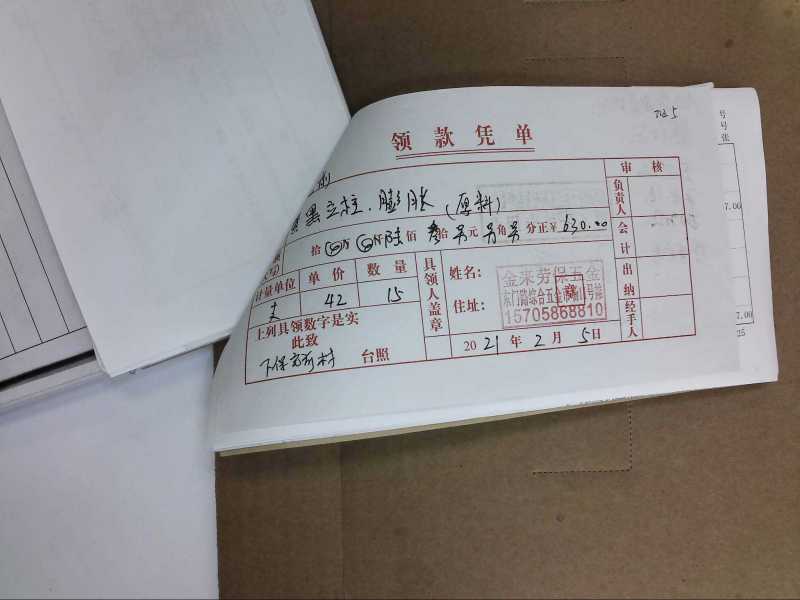 领款凭单
审核
黑立柱.膨胀(原料)
拾 万 仟陆佰叁拾另元另角另分正¥630.00
计量单位 单价 数量
支 42 15
上列具领数字是实
此致
台照
具领人盖章
姓名:
住址:
金来劳保五金
15705868810
2021年2月5日
负责人
会计
出纳
经手人
号
号
张
7.00
7.00
25